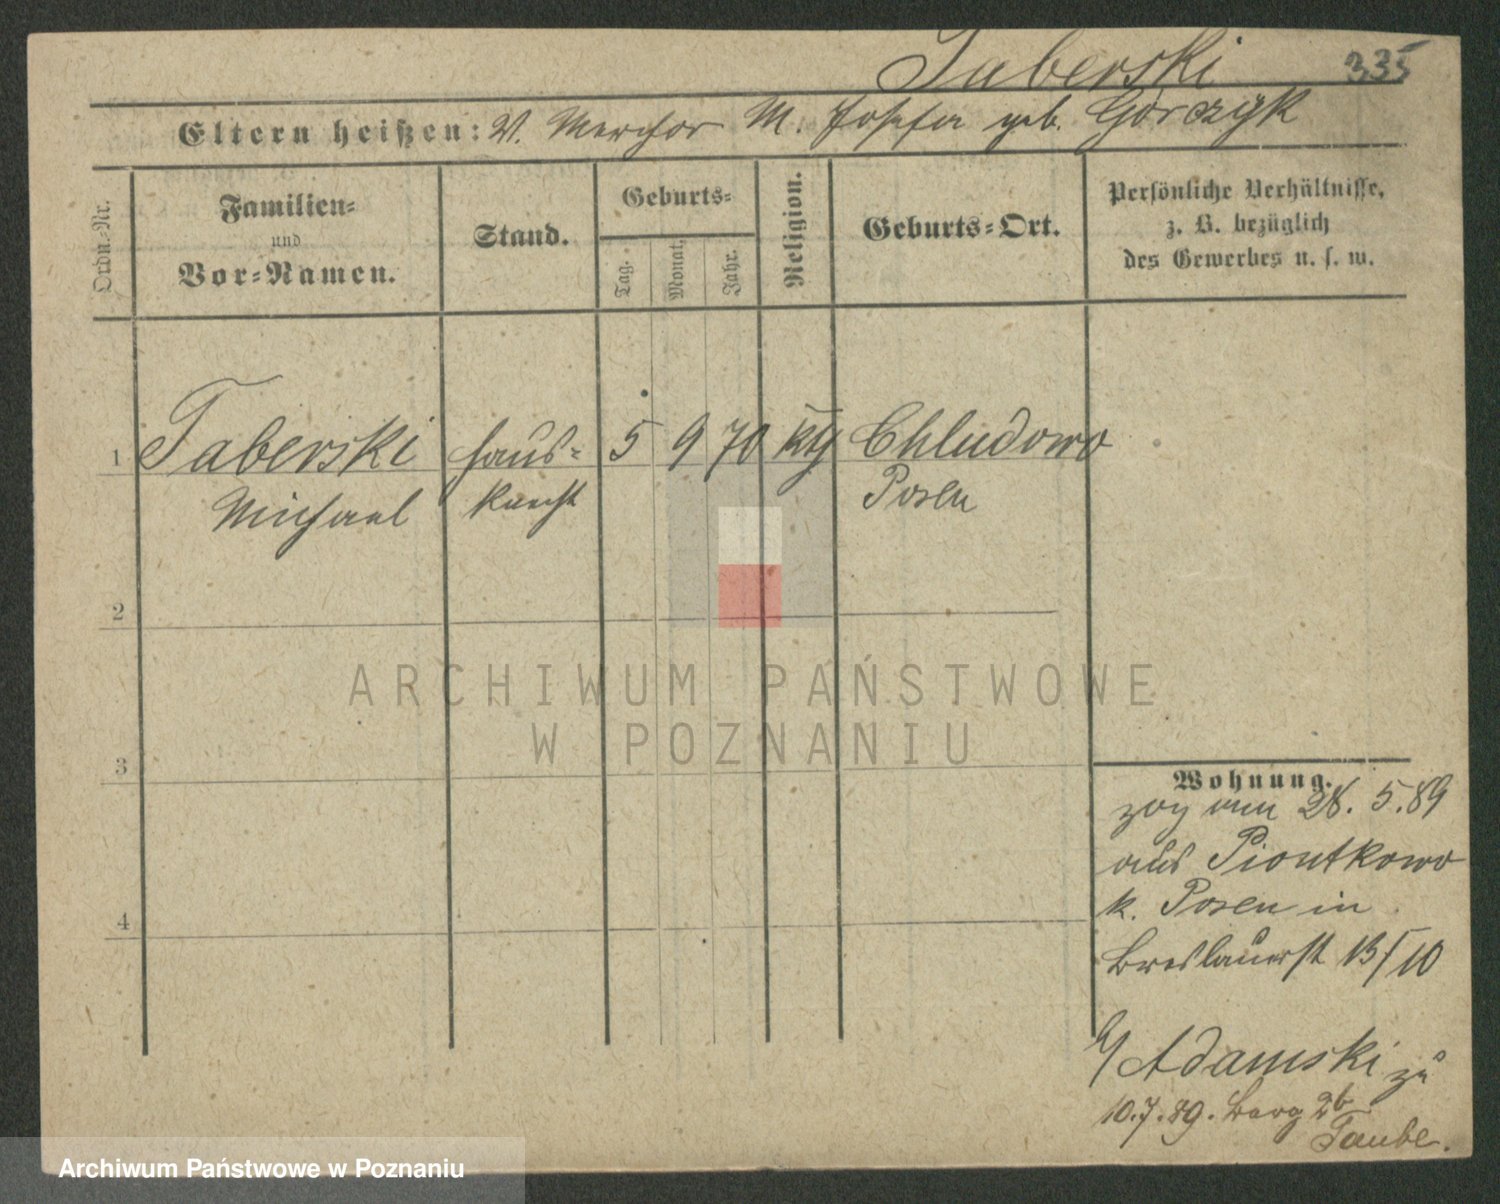 Taberski 335
Eltern heißen: V. Merchor M. Josefa geb. Gorczyk
Ordn.-Nr.
Familien-
und
Vor-Namen.
Stand.
Geburts-
Tag.
Monat.
Jahr.
Religion.
Geburts-Ort.
Persönliche Verhältnisse,
z. B. bezüglich
des Gewerbes u. s. w.
1 Taberski Haus- 5 9 70 kth Chludowo
Michael knecht Posen
2
3
4
Wohnung.
zog am 28. 5. 89
aus Piontkowo
k. Posen in
Breslauerst 13/10
Adamski zu
10.7.89. Berg 2b
Taube.
ARCHIWUM PAŃSTWOWE
W POZNANIU
Archiwum Państwowe w Poznaniu